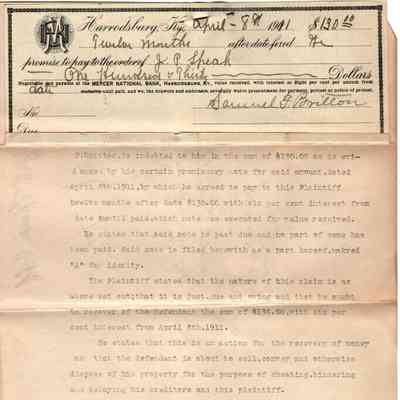 Harrodsburg, Ky, April - 8th 1911 $130.00
Twelve Months after date fixed We
promise to pay to the order of J P Speak
One Hundred & Thirty Dollars
Negotiable and payable at the MERCER NATIONAL BANK, Harrodsburg, Ky., value received, with interest at Eight per cent per annum from
date until paid, and we, the drawers and endorsers severally waive presentment for payment, protest or notice of protest.
No Samuel F Britton
Due
P.Britton,is indebted to him in the sum of $130.00 as is evi-
denced by his certain promissory note for said amount,dated
April 8th.1911,by which he agreed to pay to this Plaintiff
twelve months after date $130.00 with six per cent interest from
date until paid,which note was executed for value received.
He states that said note is past due and no part of same has
been paid. Said note is filed herewith as a part hereof,makred
"A" for idenity.
The Plaintiff states that the nature of this claim is as
above set out;that it is just,due and owing and that he ought
to recover of the Defendant the sum of $130.00,with six per
cent interest from April 8th.1911.
He states that this is an action for the recovery of money
and that the defendant is about to sell,convey and otherwise
dispose of his property for the purpose of cheating,hindering
and delaying his creditors and this plaintiff.